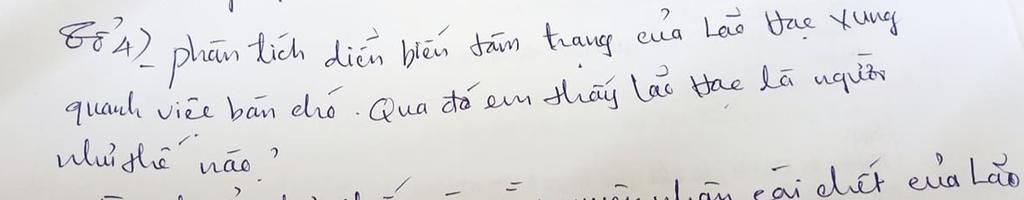 Tổ 4) phân tích diễn biến tâm trạng của Lão Hạc xung
quanh việc bán chó. Qua đó em thấy Lão Hạc là người
như thế nào?
cái chết của Lão